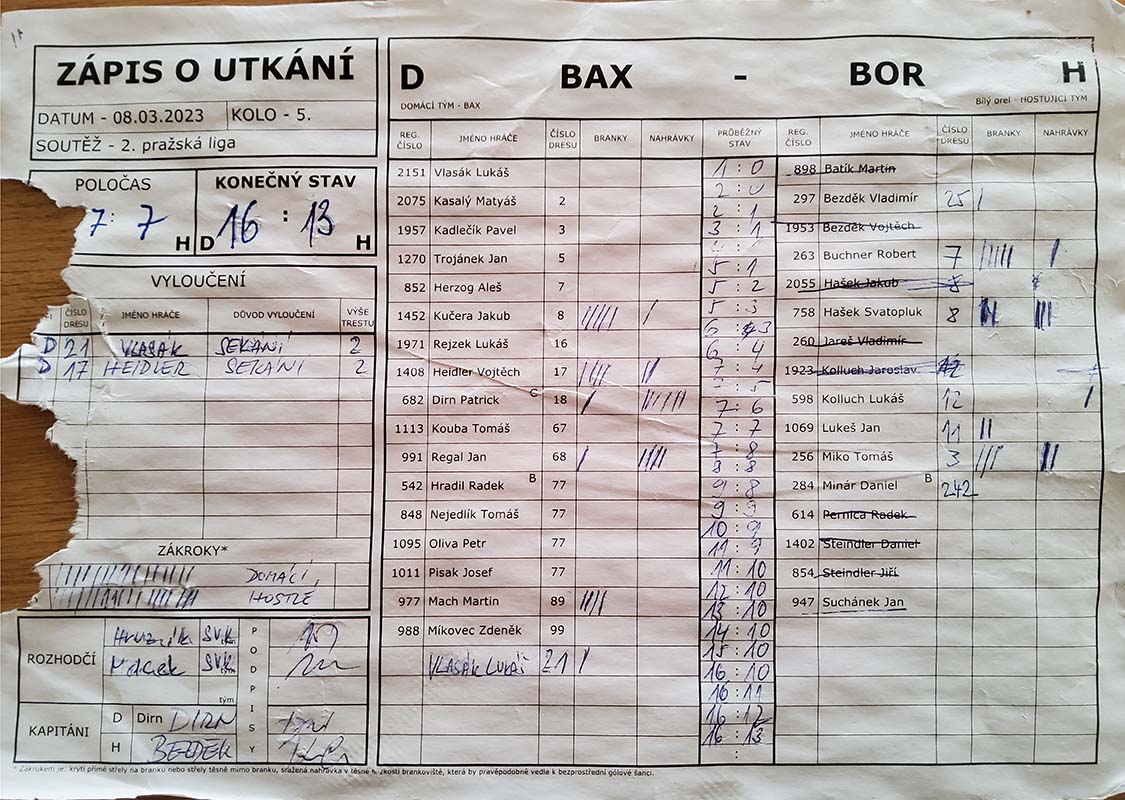 ZÁPIS O UTKÁNÍ
DATUM - 08.03.2023 KOLO - 5.
SOUTĚŽ - 2. pražská liga
POLOČAS KONEČNÝ STAV
7 : 7 H D 16 : 13 H
VYLOUČENÍ
ČÍSLO DRESU JMÉNO HRÁČE DŮVOD VYLOUČENÍ VÝŠE TRESTU
D 21 VLASÁK SEKÁNÍ 2
D 17 HEIDLER SEKÁNÍ 2
ZÁKROKY*
DOMÁCÍ
HOSTÉ
ROZHODČÍ
SVK
SVK
tým
PODPISY
KAPITÁNI
D Dirn DIRN
H BEZDĚK
D BAX - BOR H
DOMÁCÍ TÝM - BAX Bílý orel - HOSTUJÍCÍ TÝM
REG. ČÍSLO JMÉNO HRÁČE ČÍSLO DRESU BRANKY NAHRÁVKY PRŮBĚŽNÝ STAV REG. ČÍSLO JMÉNO HRÁČE ČÍSLO DRESU BRANKY NAHRÁVKY
2151 Vlasák Lukáš
2075 Kasalý Matyáš 2
1957 Kadlečík Pavel 3
1270 Trojánek Jan 5
852 Herzog Aleš 7
1452 Kučera Jakub 8
1971 Rejzek Lukáš 16
1408 Heidler Vojtěch 17
682 Dirn Patrick C 18
1113 Kouba Tomáš 67
991 Regal Jan 68
542 Hradil Radek B 77
848 Nejedlík Tomáš 77
1095 Oliva Petr 77
1011 Pisak Josef 77
977 Mach Martin 89
988 Míkovec Zdeněk 99
VLASÁK LUKÁŠ 21
1 : 0
2 : 0
2 : 1
3 : 1
5 : 1
5 : 2
5 : 3
6 : 3
6 : 4
7 : 4
: 5
7 : 6
7 : 7
7 : 8
8 : 8
9 : 8
9 : 9
10 : 9
11 : 9
11 : 10
12 : 10
13 : 10
14 : 10
15 : 10
16 : 10
16 : 11
16 : 12
16 : 13
898 Batík Martin
297 Bezděk Vladimír 25
1953 Bezděk Vojtěch
263 Buchner Robert 7
2055 Hašek Jakub 8
758 Hašek Svatopluk 8
260 Jareš Vladimír
1923 Kolluch Jaroslav 12
598 Kolluch Lukáš 12
1069 Lukeš Jan 11
256 Miko Tomáš 3
284 Minár Daniel B 242
614 Pernica Radek
1402 Steindler Daniel
854 Steindler Jiří
947 Suchánek Jan